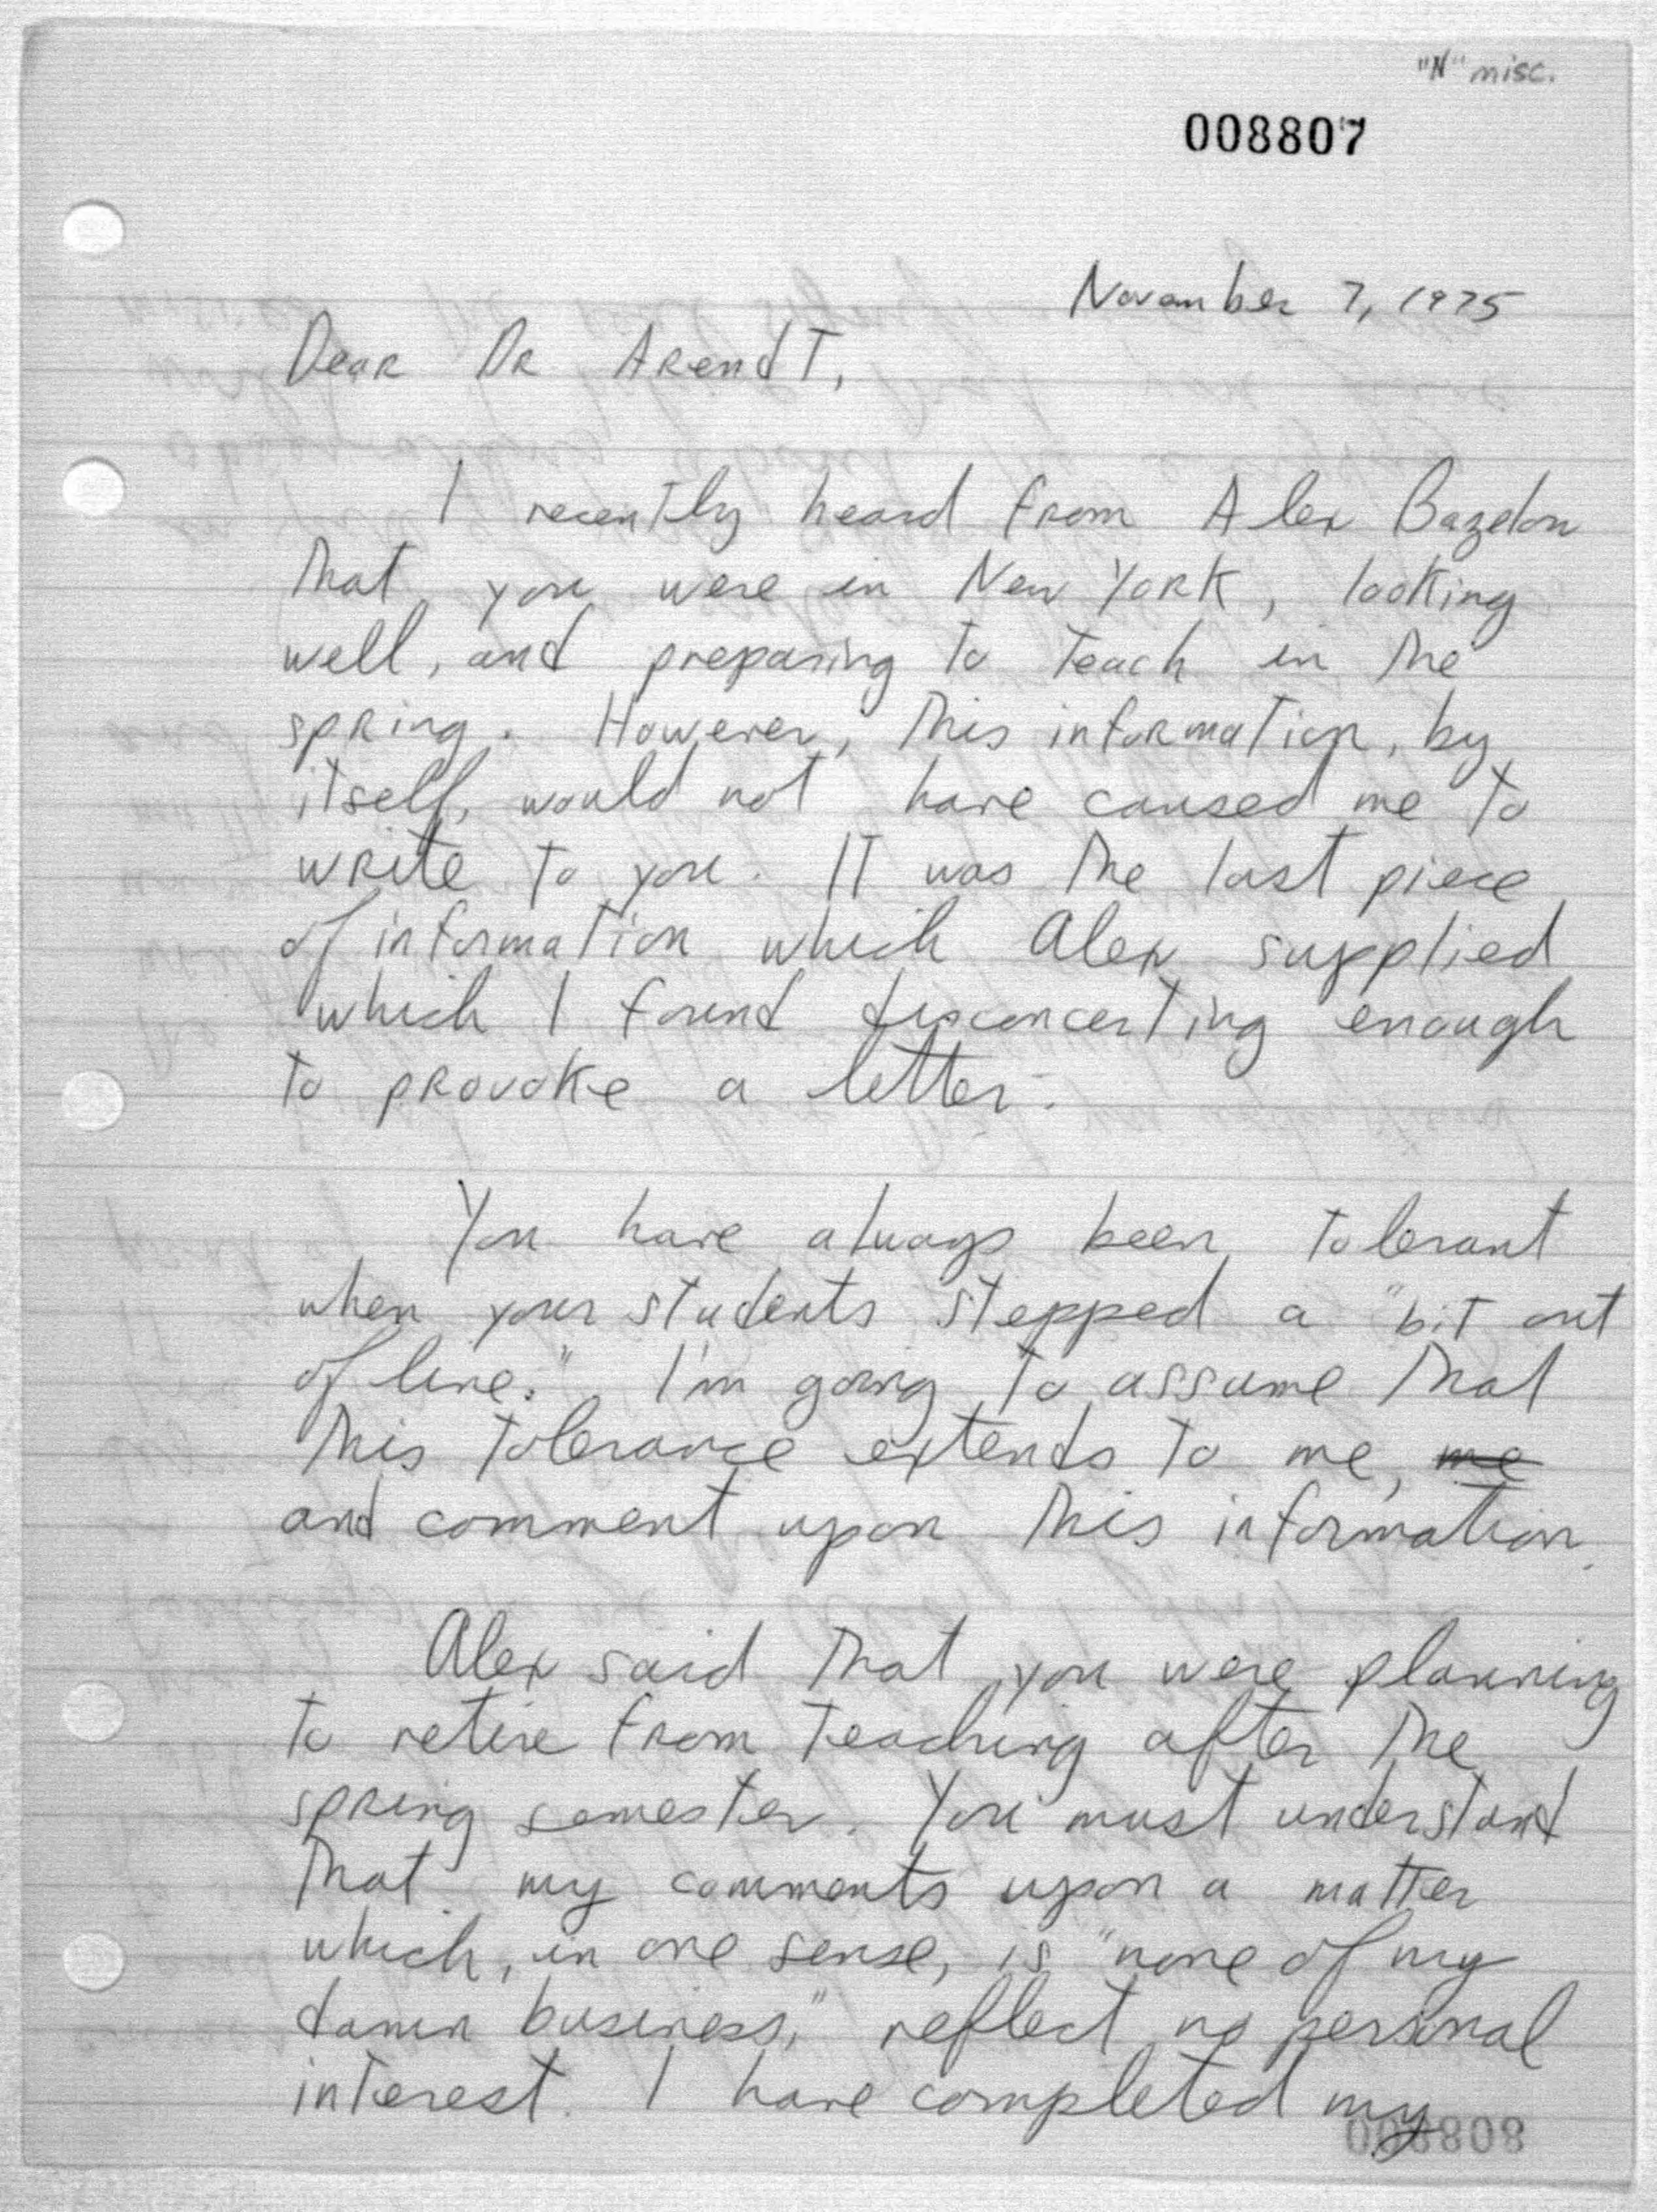 "N" misc.
008807
November 7, 1975
Dear Dr Arendt,
I recently heard from Alex Bazelon
that you were in New York, looking
well, and preparing to teach in the
spring. However, this information, by
itself, would not have caused me to
write to you. It was the last piece
of information which Alex supplied
which I found disconcerting enough
to provoke a letter.
You have always been tolerant
when your students stepped a "bit out
of line." I'm going to assume that
this tolerance extends to me, me
and comment upon this information.
Alex said that you were planning
to retire from teaching after the
spring semester. You must understand
that my comments upon a matter
which, in one sense, is "none of my
damn business," reflect no personal
interest. I have completed my
008808